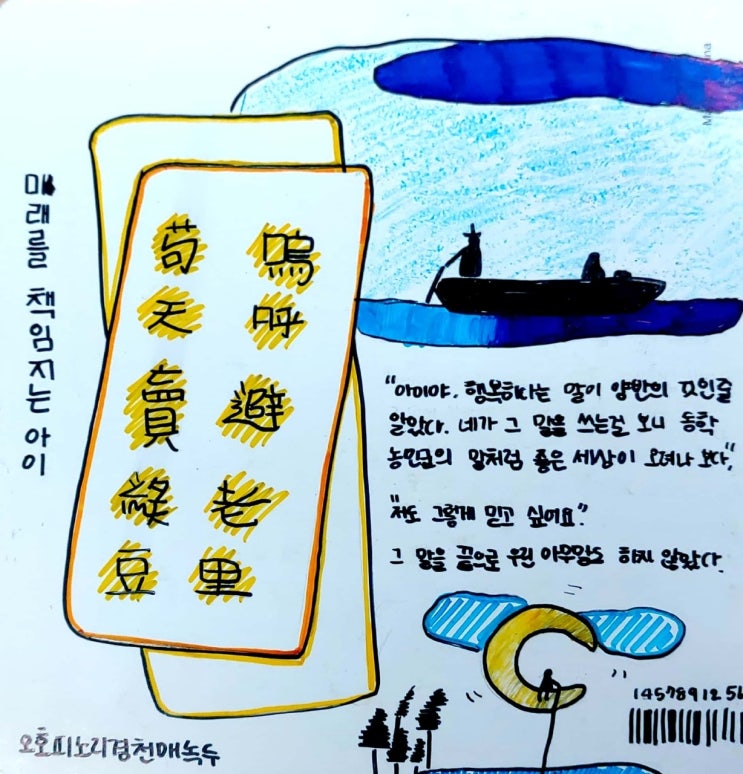 미래를 책임지는 아이
嗚呼避老里
苟天賣綠豆
"아이야, 행복하다는 말이 양반의 것인줄
알았다. 네가 그 말을 쓰는걸 보니 동학
농민군의 말처럼 좋은 세상이 오려나 보다."
"저도 그렇게 믿고 싶어요."
그 말을 끝으로 우린 아무말도 하지 않았다.
1457891256
오호피노리경천매녹두